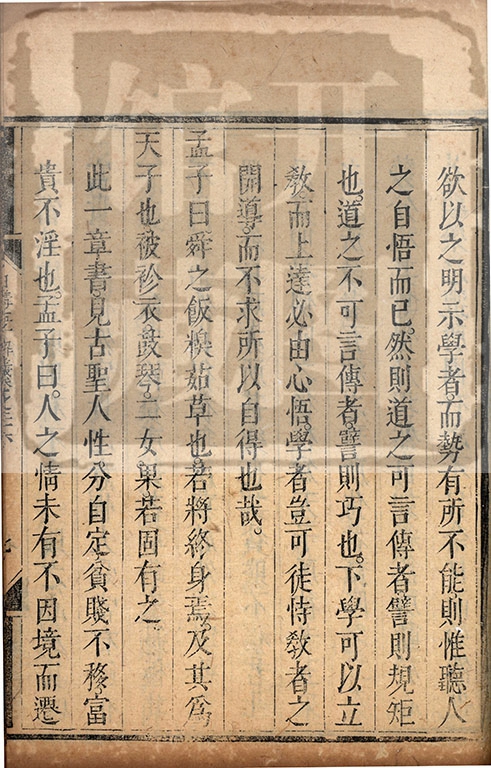 欲以之明示學者。而勢有所不能則惟聽人
之自悟而已。然則道之可言傳者。譬則規矩
也。道之不可言傳者。譬則巧也。下學可以立
教。而上達必由心悟。學者豈可徒恃教者之
開導。而不求所以自得也哉。
孟子曰舜之飯糗茹草也。若將終身焉。及其爲
天子也。被袗衣。鼓琴。二女果。若固有之。
此一章書。見古聖人性分自定。貧賤不移。富
貴不淫也。孟子曰。人之情未有不因境而遷